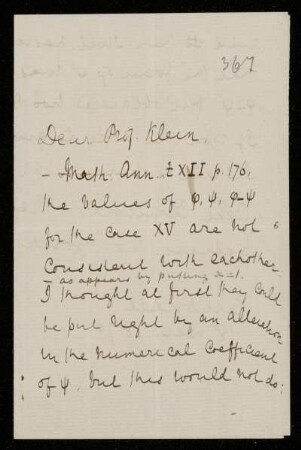 367
Dear Prof. Klein.
– Math. Ann t XII p. 176.
the values of φ, ψ, φ–ψ
for the case XV are not
consistent with eachother
– as appears by putting x=1.
I thought at first they could
be put right by an alteration
in the numerical coefficient
of ψ, but this would not do: